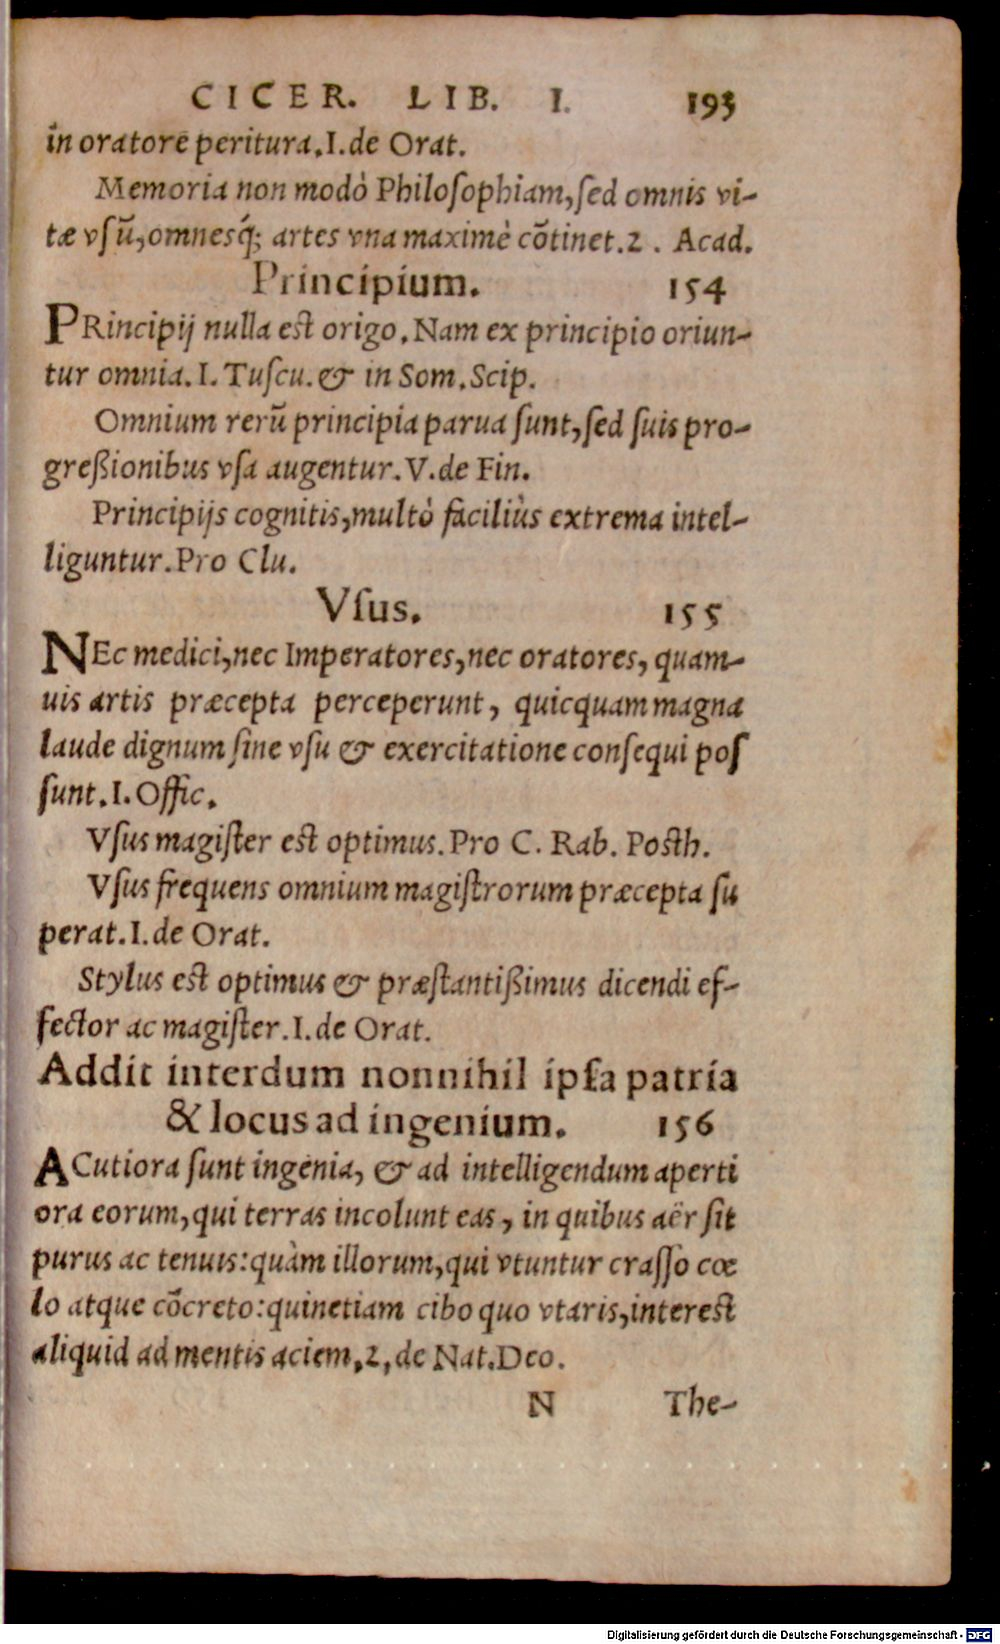 CICER. LIB. I. 193
in oratore peritura. I. de Orat.
Memoria non modò Philoſophiam, ſed omnis vi-
tæ vſũ, omnesq́; artes vna maximè cõtinet. 2. Acad.
Principium. 154
PRincipij nulla est origo. Nam ex principio oriun-
tur omnia. I. Tuſcu. & in Som. Scip.
Omnium rerũ principia parua ſunt, ſed ſuis pro-
greßionibus vſa augentur. V. de Fin.
Principijs cognitis, multò faciliùs extrema intel-
liguntur. Pro Clu.
Vſus. 155
NEc medici, nec Imperatores, nec oratores, quam-
uis artis præcepta perceperunt, quicquam magna
laude dignum ſine vſu & exercitatione conſequi poſ
ſunt. I. Offic.
Vſus magiſter est optimus. Pro C. Rab. Posth.
Vſus frequens omnium magiſtrorum præcepta ſu
perat. I. de Orat.
Stylus est optimus & præſtantißimus dicendi ef-
fector ac magiſter. I. de Orat.
Addit interdum nonnihil ipſa patria
& locus ad ingenium. 156
ACutiora ſunt ingenia, & ad intelligendum aperti
ora eorum, qui terras incolunt eas, in quibus aër ſit
purus ac tenuis: quàm illorum, qui vtuntur craſſo cœ
lo atque cõcreto: quinetiam cibo quo vtaris, interest
aliquid ad mentis aciem, 2, de Nat. Deo.
N The-
Digitalisierung gefördert durch die Deutsche Forschungsgemeinschaft - DFG